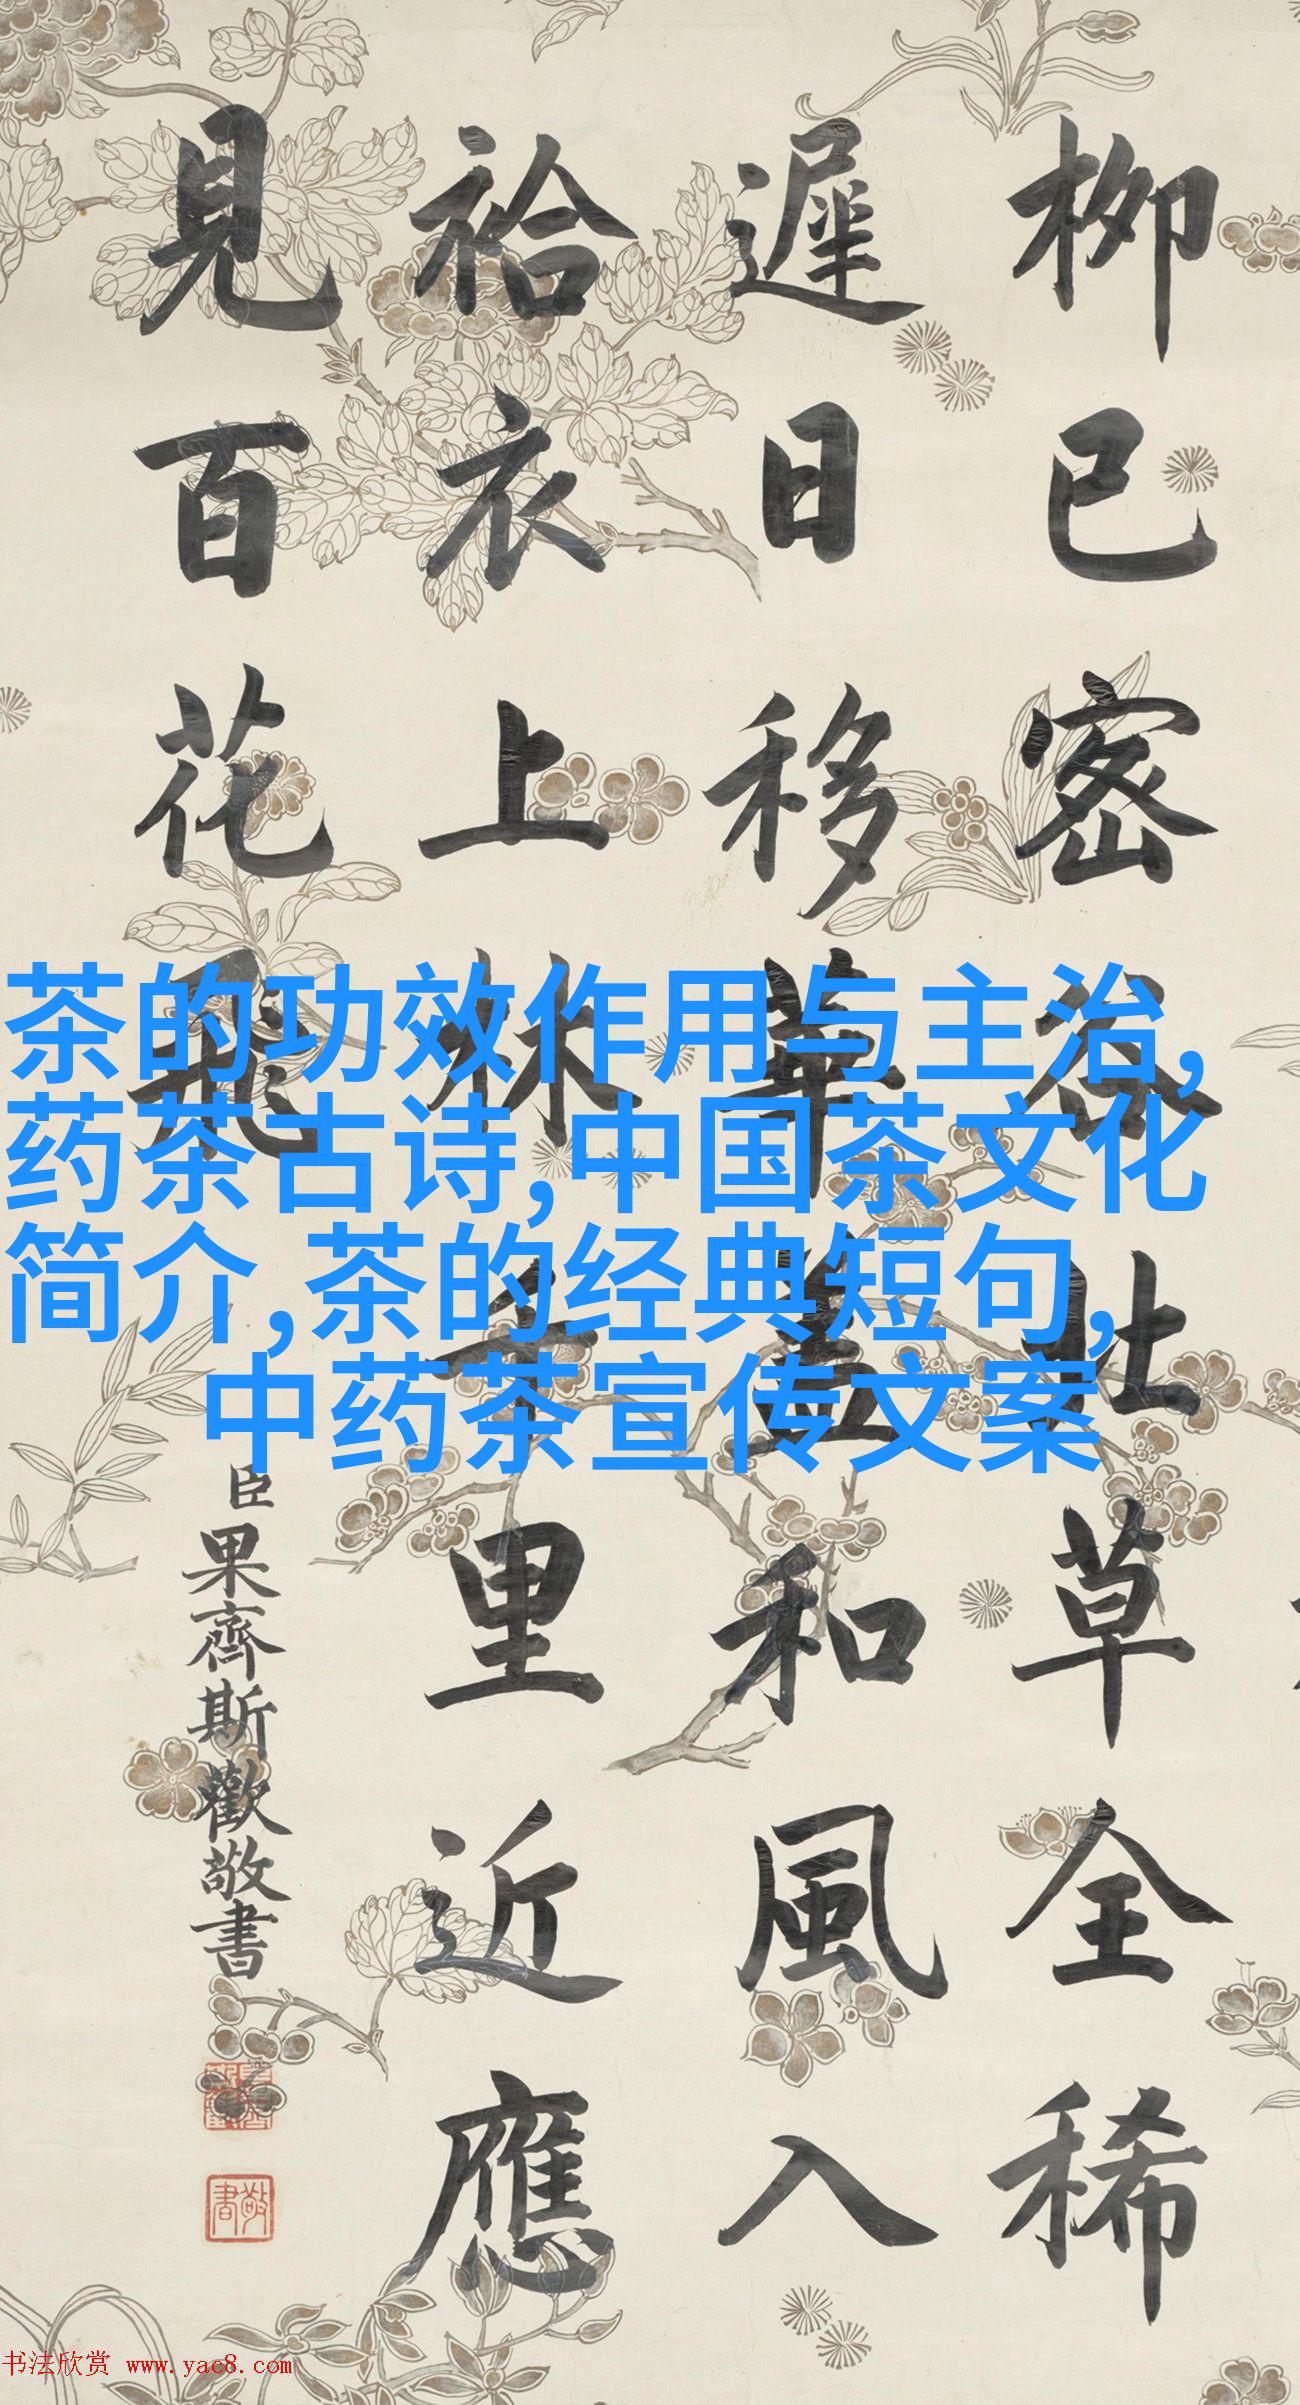 柳已密谷牡草全稀
遲日移華蓋和風入
袷衣上林千里近應
見百花飛
臣果齊斯歡敬書
敬書
茶的功效作用与主治,
药茶古诗,中国茶文化
简介,茶的经典短句,
中药茶宣传文案
书法欣赏 www.yac8.com